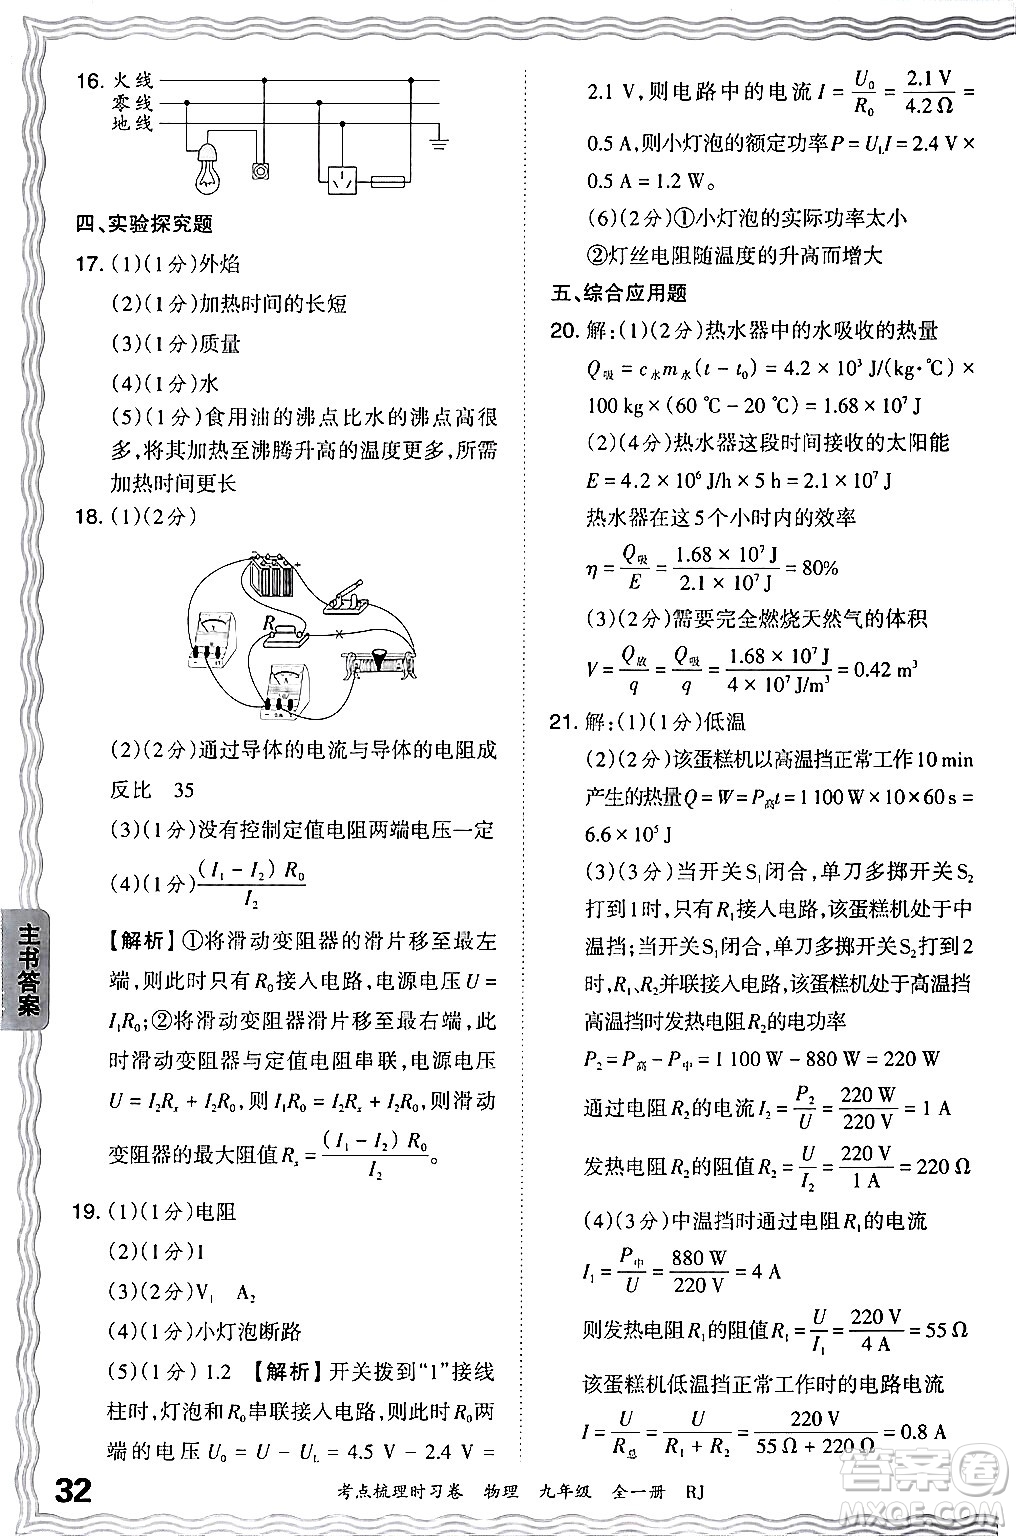 16. 火线
零线
地线
四、实验探究题
17. (1)(1分)外焰
(2)(1分)加热时间的长短
(3)(1分)质量
(4)(1分)水
(5)(1分)食用油的沸点比水的沸点高很
多,将其加热至沸腾升高的温度更多,所需
加热时间更长
18. (1)(2分)
R
(2)(2分)通过导体的电流与导体的电阻成
反比 35
(3)(1分)没有控制定值电阻两端电压一定
(4)(1分)(I₁ - I₂)R₀/I₂
【解析】①将滑动变阻器的滑片移至最左
端,此时只有R₀接入电路,电源电压U =
I₁R₀;②将滑动变阻器滑片移至最右端,此
时滑动变阻器与定值电阻串联,电源电压
U = I₂Rₓ + I₂R₀,则I₁R₀ = I₂Rₓ + I₂R₀,则滑动
变阻器的最大阻值Rₓ = (I₁ - I₂)R₀/I₂。
19. (1)(1分)电阻
(2)(1分)1
(3)(2分)V₁ A₂
(4)(1分)小灯泡断路
(5)(1分)1.2 【解析】开关拨到“1”接线
柱时,灯泡和R₀串联接入电路,则此时R₀两
端的电压U₀ = U - U_L = 4.5 V - 2.4 V =
2.1 V,则电路中的电流I = U₀/R₀ = 2.1 V/4.2 Ω =
0.5 A,则小灯泡的额定功率P = U_L I = 2.4 V ×
0.5 A = 1.2 W。
(6)(2分)①小灯泡的实际功率太小
②灯丝电阻随温度的升高而增大
五、综合应用题
20. 解:(1)(2分)热水器中的水吸收的热量
Q吸 = c水m水(t - t₀) = 4.2 × 10³ J/(kg·℃) ×
100 kg × (60 ℃ - 20 ℃) = 1.68 × 10⁷ J
(2)(4分)热水器这段时间接收的太阳能
E = 4.2 × 10⁶ J/h × 5 h = 2.1 × 10⁷ J
热水器在这5个小时内的效率
η = Q吸/E = 1.68 × 10⁷ J/2.1 × 10⁷ J = 80%
(3)(2分)需要完全燃烧天然气的体积
V = Q放/q = Q吸/q = 1.68 × 10⁷ J/4 × 10⁷ J/m³ = 0.42 m³
21. 解:(1)(1分)低温
(2)(2分)该蛋糕机以高温挡正常工作10 min
产生的热量Q = W = P高t = 1 100 W × 10 × 60 s =
6.6 × 10⁵ J
(3)(3分)当开关S₁闭合,单刀多掷开关S₂
打到1时,只有R₁接入电路,该蛋糕机处于中
温挡;当开关S₁闭合,单刀多掷开关S₂打到2
时,R₁、R₂并联接入电路,该蛋糕机处于高温挡
高温挡时发热电阻R₂的电功率
P₂ = P高 - P中 = 1 100 W - 880 W = 220 W
通过电阻R₂的电流I₂ = P₂/U = 220 W/220 V = 1 A
发热电阻R₂的阻值R₂ = U/I₂ = 220 V/1 A = 220 Ω
(4)(3分)中温挡时通过电阻R₁的电流
I₁ = P中/U = 880 W/220 V = 4 A
则发热电阻R₁的阻值R₁ = U/I₁ = 220 V/4 A = 55 Ω
该蛋糕机低温挡正常工作时的电路电流
I = U/R总 = U/R₁ + R₂ = 220 V/55 Ω + 220 Ω = 0.8 A
主书答案
32
考点梳理时习卷 物理 九年级 全一册 RJ
答案圈
MXQE.COM